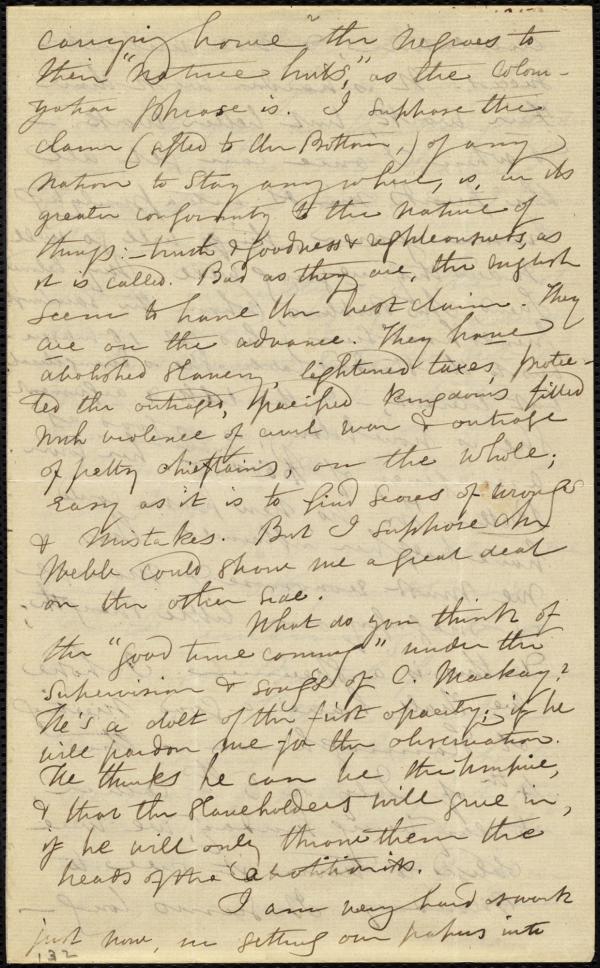 carrying home" the negroes to
their "native huts," as the Colon-
phrase is. I suppose the
claim (sifted to the Bottom,) of any
nation to stay any where, is, in its
greater conformity to the nature of
things:—truth & goodness & righteousness, as
it is called. Bad as they are, the English
seem to have the best claim. They
are on the advance. They have
abolished slavery, lightened taxes, protec-
ted the outraged, pacified kingdoms filled
with violence of civil war & outrage
of petty chieftains, on the whole;
easy as it is to find scores of wrongs
& mistakes. But I suppose Mr
Webb could show me a great deal
on the other side.
What do you think of
the "good time coming" under the
supervision & songs of C. Mackay?
He's a dolt of the first opacity; if he
will pardon me for the observation.
He thinks he can be the Umpire,
& that the slaveholders will give in,
if he will only throw them the
heads of the abolitionists.
I am very hard at work
just now, in getting our papers into
132